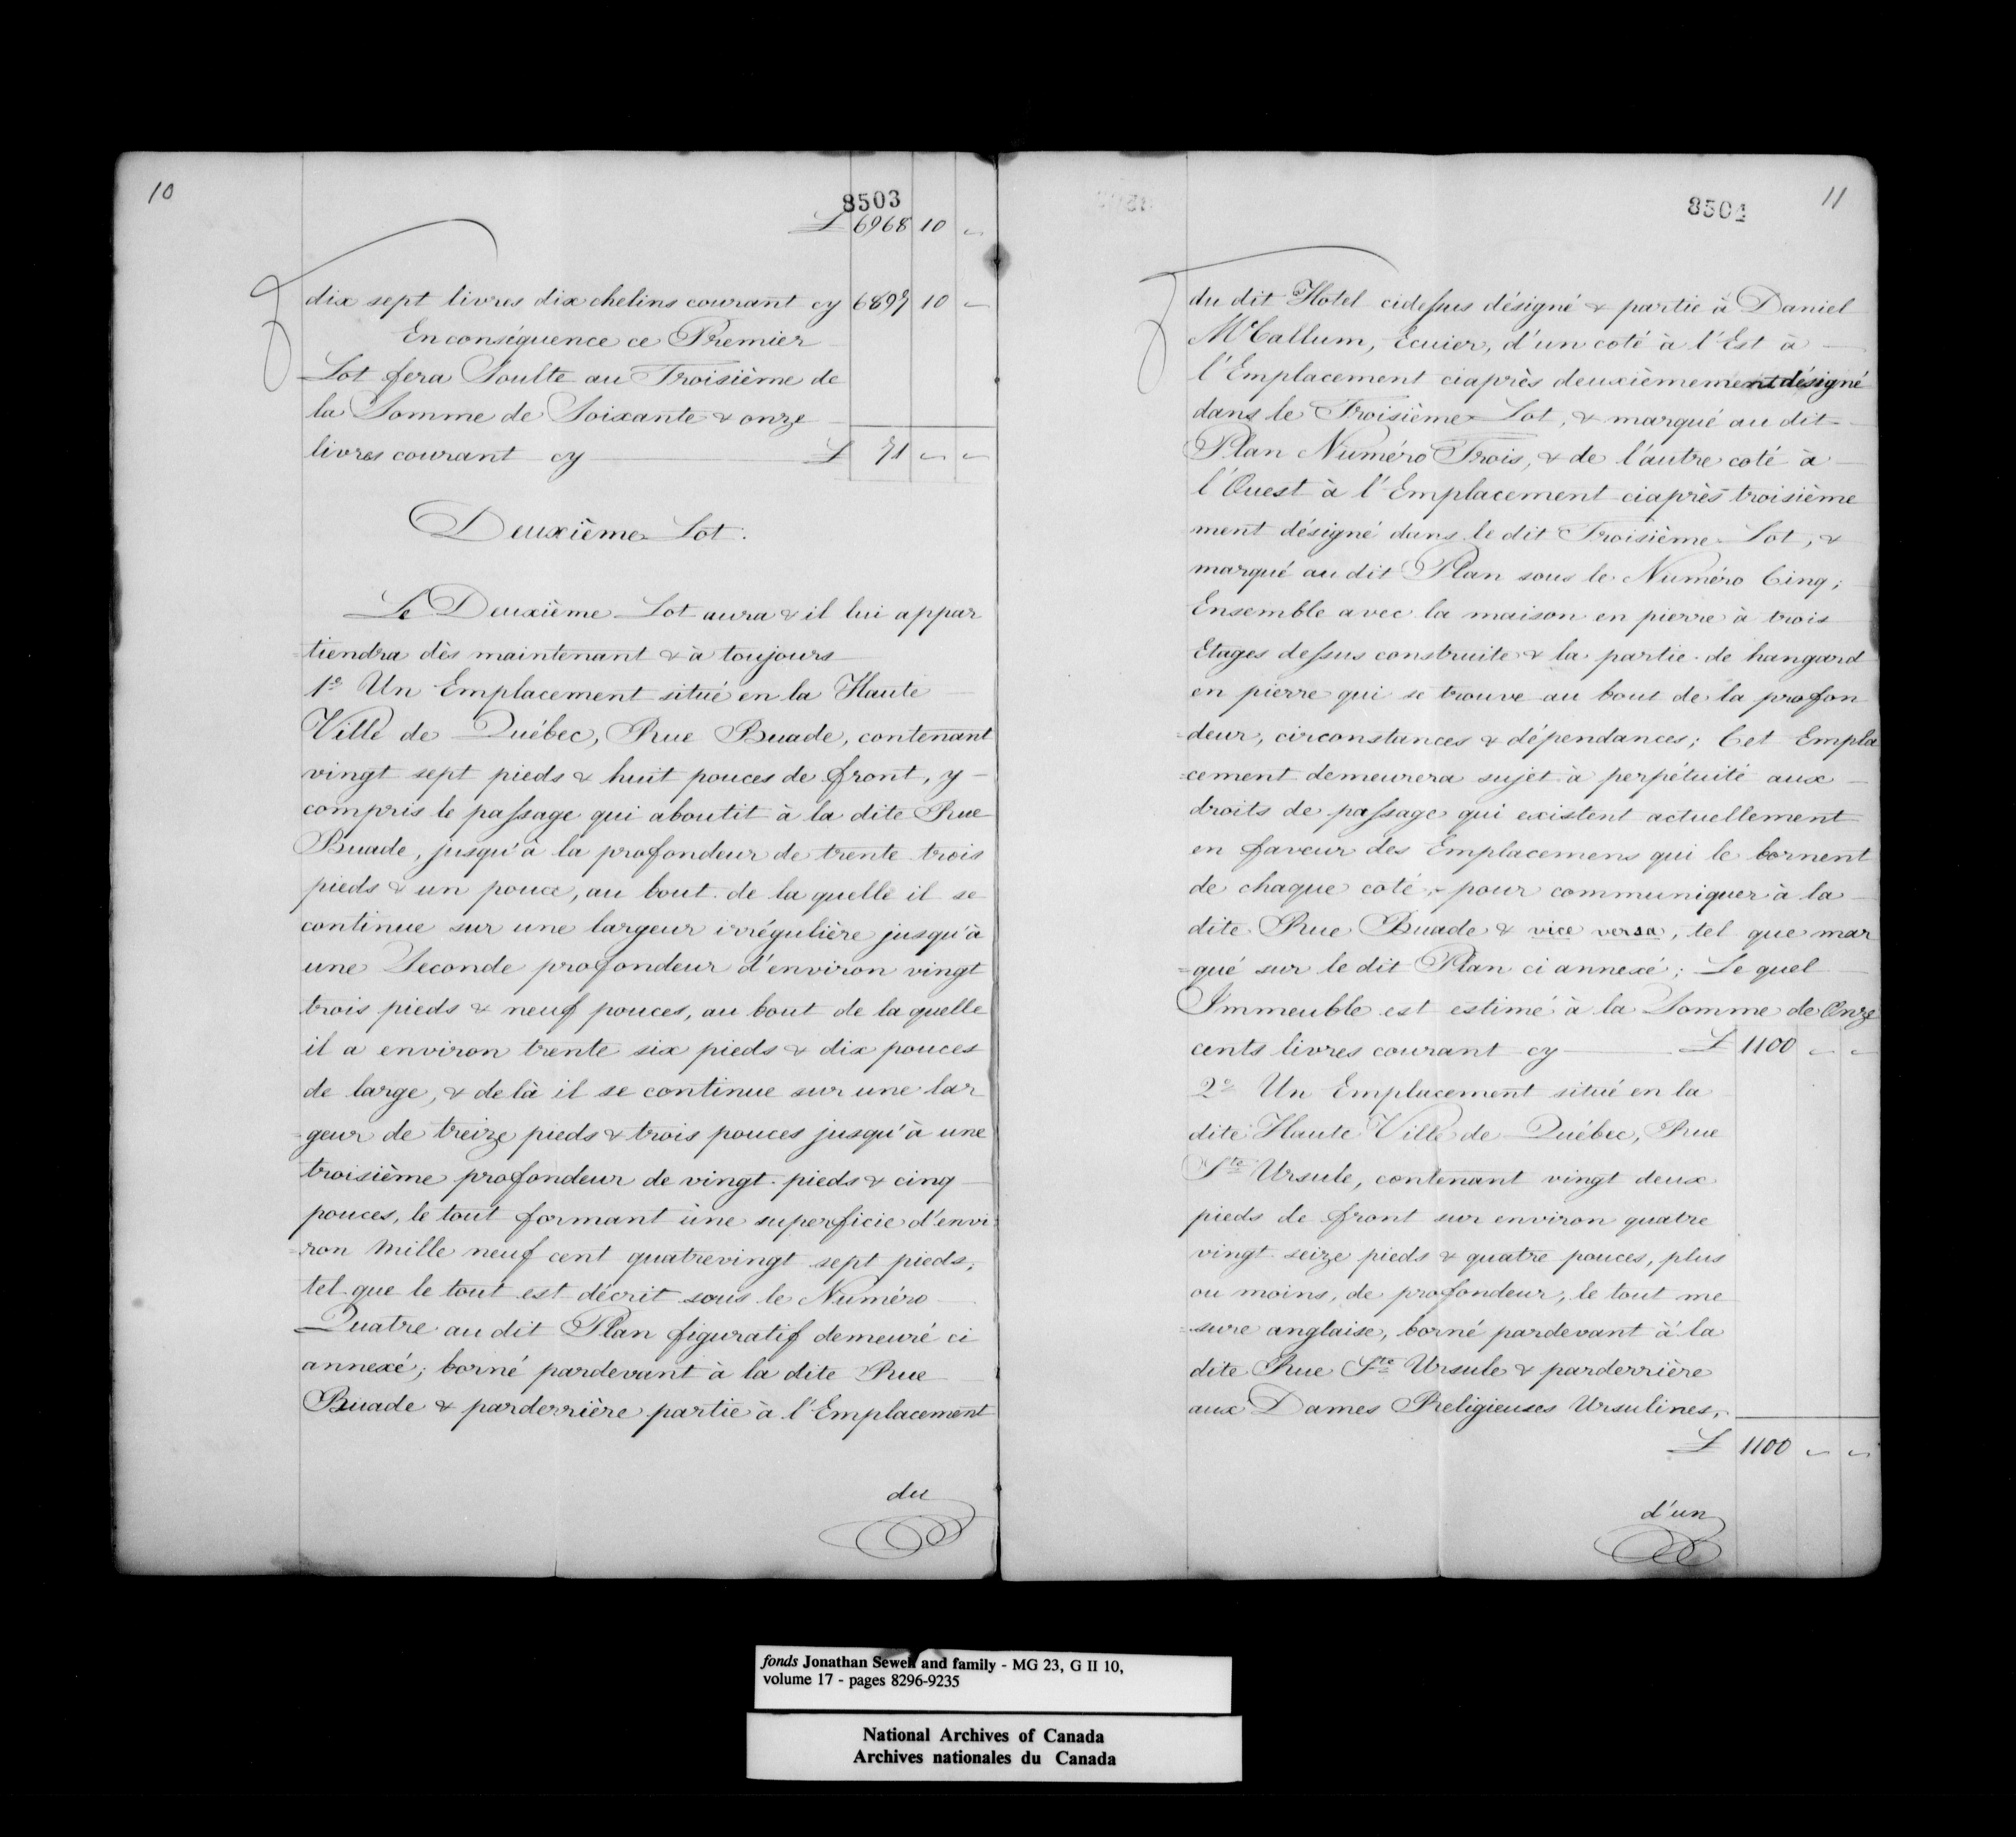 10
8503
£ 6968 10 "
dix sept livres dix chelins courant cy 6897 10 "
En conséquence ce Premier
Lot fera Soulte au Troisième de
la Somme de Soixante & onze
livres courant cy £ 71 " "
Deuxième Lot.
Le Deuxième Lot aura & il lui appar
=tiendra dès maintenant & à toujours
1º Un Emplacement situé en la Haute
Ville de Québec, Rue Buade, contenant
vingt sept pieds & huit pouces de front, y
compris le passage qui aboutit à la dite Rue
Buade, jusqu'à la profondeur de trente trois
pieds & un pouce, au bout de la quelle il se
continue sur une largeur irrégulière jusqu'à
une Seconde profondeur d'environ vingt
trois pieds & neuf pouces, au bout de la quelle
il a environ trente six pieds & dix pouces
de large, & de là il se continue sur une lar
=geur de treize pieds & trois pouces jusqu'à une
troisième profondeur de vingt pieds & cinq
pouces, le tout formant une superficie d'envi
=ron mille neuf cent quatrevingt sept pieds,
tel que le tout est décrit sous le Numéro
Quatre au dit Plan figuratif demeuré ci
annexé; borné pardevant à la dite Rue
Buade & parderrière partie à l'Emplacement
du
11
8504
du dit Hotel cidessus désigné & partie à Daniel
McCallum, Ecuier, d'un coté à l'Est à
l'Emplacement ciaprès deuxièmement désigné
dans le Troisième Lot, & marqué au dit
Plan Numéro Trois, & de l'autre coté à
l'Ouest à l'Emplacement ciaprès troisième
ment désigné dans le dit Troisième Lot, &
marqué au dit Plan sous le Numéro Cinq;
Ensemble avec la maison en pierre à trois
Etages dessus construite & la partie de hangard
en pierre qui se trouve au bout de la profon
=deur, circonstances & dépendances; Cet Empla
=cement demeurera sujet à perpétuité aux
droits de passage qui existent actuellement
en faveur des Emplacemens qui le bornent
de chaque coté, pour communiquer à la
dite Rue Buade & vice versa, tel que mar
=qué sur le dit Plan ci annexé; Le quel
Immeuble est estimé à la Somme de Onze
cents livres courant cy £ 1100 " "
2º Un Emplacement situé en la
dite Haute Ville de Québec, Rue
Ste Ursule, contenant vingt deux
pieds de front sur environ quatre
vingt seize pieds & quatre pouces, plus
ou moins, de profondeur, le tout me
=sure anglaise, borné pardevant à la
dite Rue Ste Ursule & parderrière
aux Dames Religieuses Ursulines,
£ 1100 " "
d'un
fonds Jonathan Sewell and family - MG 23, G II 10,
volume 17 - pages 8296-9235
National Archives of Canada
Archives nationales du Canada